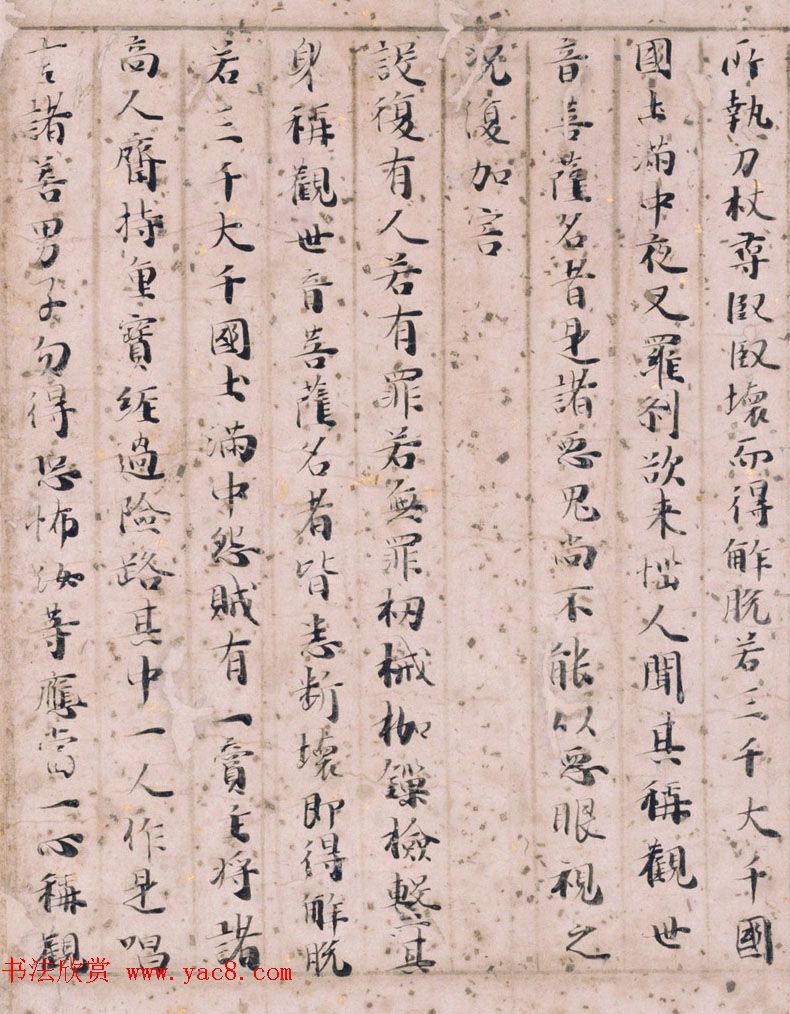 所執刀杖尋段段壞而得解脱若三千大千國
國土滿中夜叉羅刹欲来惱人聞其稱觀世
音菩薩名者是諸惡鬼尚不能以惡眼視之
況復加害
設復有人若有罪若無罪杻械枷鏁檢繫其
身稱觀世音菩薩名者皆悉断壞即得解脱
若三千大千國土滿中怨賊有一商主将諸
商人齎持重寶經過險路其中一人作是唱
言諸善男子勿得恐怖汝等應當一心稱觀
书法欣赏 www.yac8.com